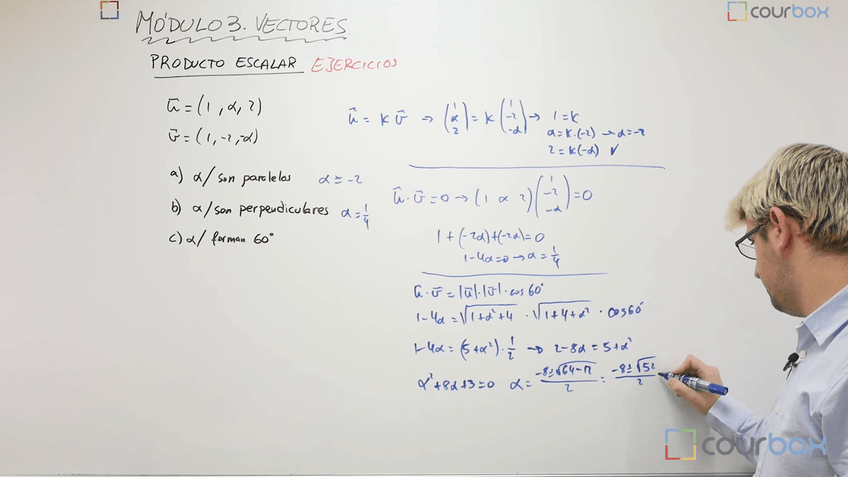 MÓDULO 3. VECTORES
courbox
PRODUCTO ESCALAR EJERCICIOS
ū = (1, α, 2)
v̄ = (1, -2, -α)
a) α/ son paralelos α = -2
b) α/ son perpendiculares α = 1/4
c) α/ forman 60°
ū = K v̄ → (1 α 2) = K (1 -2 -α) → 1 = K
α = K·(-2) → α = -2
2 = K(-α) ✓
ū · v̄ = 0 → (1 α 2) (1 -2 -α) = 0
1 + (-2α) + (-2α) = 0
1 - 4α = 0 → α = 1/4
ū · v̄ = |ū| · |v̄| · cos 60°
1 - 4α = √(1+α²+4) · √(1+4+α²) · cos 60°
1 - 4α = (5+α²) · 1/2 → 2 - 8α = 5 + α²
α² + 8α + 3 = 0 α = (-8 ± √(64-12))/2 = (-8 ± √52)/2
courbox